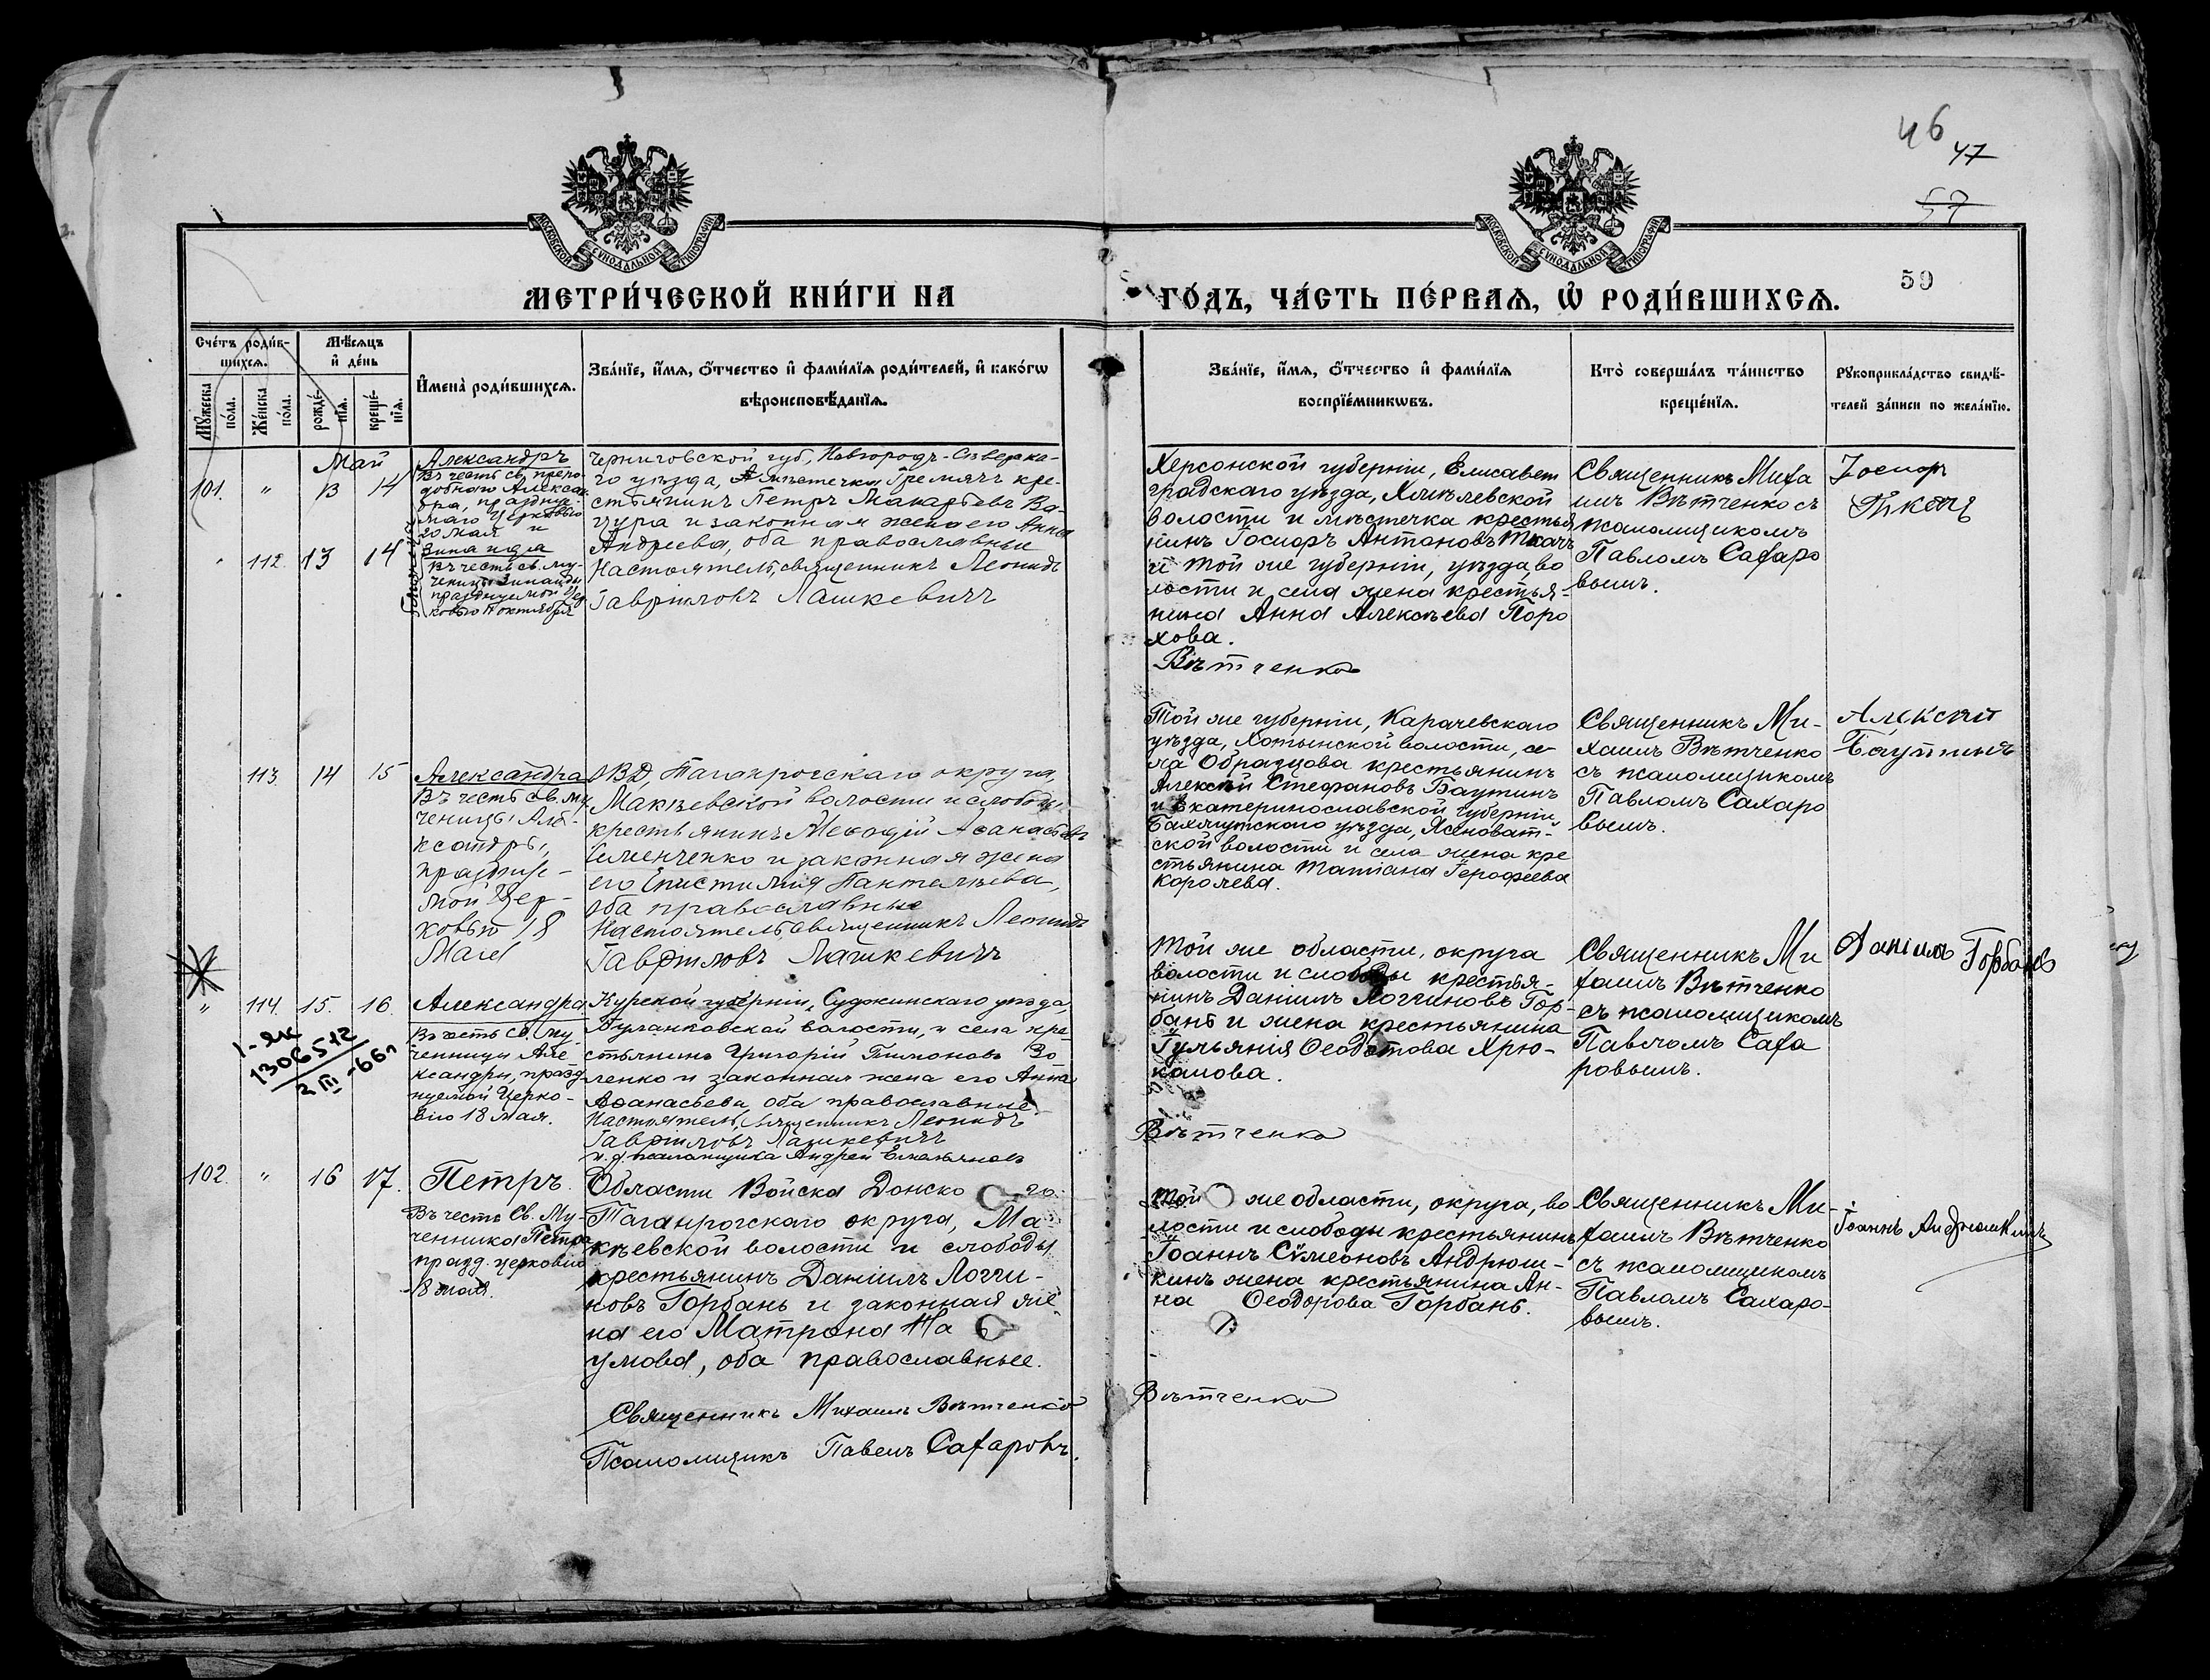 46
47
57
МОСКОВСКОЙ СѴНОДАЛЬНОЙ ТИПОГРАФІИ
МОСКОВСКОЙ СѴНОДАЛЬНОЙ ТИПОГРАФІИ
59
МЕТРИ́ЧЕСКОЙ КНИ́ГИ НА
ГО́ДЪ, ЧА́СТЬ ПЕ́РВАѦ, Ѡ҆ РОДИ́ВШИХСѦ.
Сче́тъ роди́в-
шихсѧ.
Мѣ́сѧцъ
и҆ де́нь
Мꙋ́жеска
по́ла.
Же́нска
по́ла.
рожде́-
нїѧ.
креще́-
нїѧ.
И҆мена̀ роди́вшихсѧ.
Зва́нїе, и҆́мѧ, ѻ҆́тчество и҆ фами́лїѧ роди́телей, и҆ како́гѡ
вѣроисповѣ́данїѧ.
Зва́нїе, и҆́мѧ, ѻ҆́тчество и҆ фами́лїѧ
воспрїе́мникѡвъ.
Кто̀ соверша́лъ та́инство
креще́нїѧ.
Рꙋкоприкла́дство свидѣ́-
телей за́писи по жела́нїю.
Май
101. " 13 14
Александръ
Въ честь св. препо-
добнаго Алексан-
дра, праздну-
маго Церковью
20 мая
и
" 112. 13 14
Зинаида
Въ честь св. му-
ченицы Зинаиды
празднуемой Цер
ковью 11 октября
Черниговской губ., Новгородъ-Сѣверска-
го уѣзда, мѣстечка Гремячъ кре-
стьянинъ Петръ Макарьевъ Ва-
цура и законная жена его Анна
Андреева, оба православные
Настоятель, священникъ Леонидъ
Гавриловъ Лашкевичъ
Херсонской губерніи, Елисавет
градскаго уѣзда, Хмѣлевской
волости и мѣстечка крестья
нинъ Госифъ Антоновъ Ткачъ
и той же губерніи, уѣзда, во
лости и села жена крестья-
нина Анна Алексѣева Поро
хова.
Вѣтченко
Священникъ Миха
илъ Вѣтченко съ
псаломщикомъ
Павломъ Сахаро
вымъ.
113. 14 15
Александра
Въ честь св. му
ченицы Але-
ксандры,
празднуе-
мой Цер-
ковью 18
Мая
ОВД, Таганрогскаго округа,
Макѣевской волости и слободы
крестьянинъ Меѳодій Аѳанасьевъ
Семенченко и законная жена
его Епистимія Пантелѣева,
оба православные
Настоятель, священникъ Леонидъ
Гавриловъ Лашкевичъ
Той же губерніи, Карачевскаго
уѣзда, Хотынской волости, се-
ла Образцова крестьянинъ
Алексѣй Стефановъ Баутинъ
и Екатеринославской губерніи
Бахмутскаго уѣзда, Ясиноват-
ской волости и села жена кре
стьянина Татіана Герофеева
Королева.
Священникъ Ми-
хаилъ Вѣтченко
съ псаломщикомъ
Павломъ Сахаро
вымъ.
Алексѣй
Баутинъ
" 114. 15. 16.
1-як
1306512
2 III-66г
Александра
Въ честь Св. Му-
ченицы Але
ксандры, празд-
нуемой Церко-
вію 18 мая.
Курской губерніи, Суджинскаго уѣзда,
волости, и села кре
стьянинъ Григорій Тимоновъ Зо-
ленко и законная жена его Анна
Аѳанасьева, оба православные
Настоятель, священникъ Леонидъ
Гавриловъ Лашкевичъ
и. д. псаломщика Андрей Емельяновъ
Той же области, округа
волости и слободы крестья-
нинъ Даніилъ Логгиновъ Гор-
бань и жена крестьянина
Гульянія Ѳеодотова Хрю-
камова.
Вѣтченко
Священникъ Ми
хаилъ Вѣтченко
съ псаломщикомъ
Павломъ Саха
ровымъ.
Даніилъ Горбань
102. " 16 17.
Петръ
Въ честь Св. Му-
ченника Петра
празд. церковью
18 мая.
Области Войска Донско го
Таганрогскаго округа, Ма-
кѣевской волости и слободы
крестьянинъ Даніилъ Логги-
новъ Горбань и законная же
на его Матрона На
умова, оба православные.
Священникъ Михаилъ Вѣтченко
Псаломщикъ Павелъ Сахаровъ.
Той же области, округа, во
лости и слободы крестьянинъ
Іоаннъ Сѵмеоновъ Андрюш-
кинъ жена крестьянина Ан-
на Ѳеодорова Горбань.
Вѣтченко
Священникъ Ми-
хаилъ Вѣтченко
съ псаломщикомъ
Павломъ Сахаро-
вымъ.
Іоаннъ Андрюшкинъ